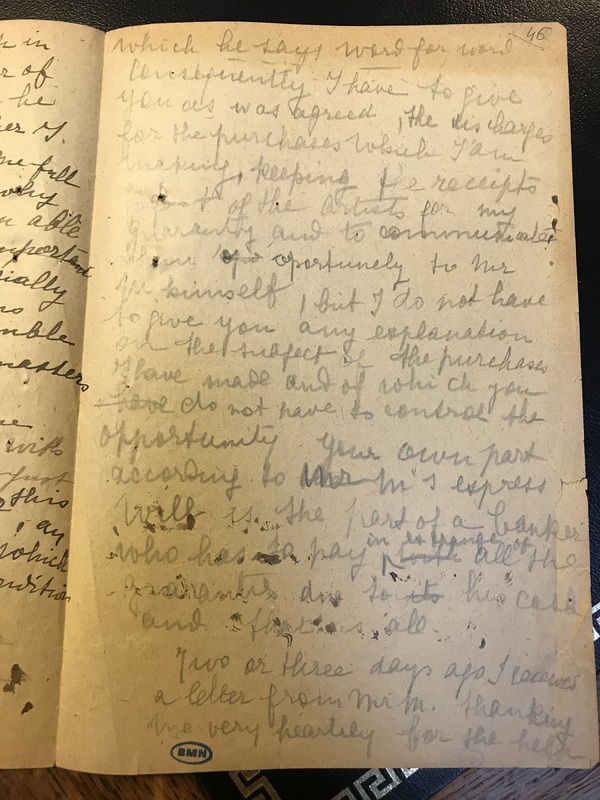 h in
r of
he
her G.
me full
why
n able
important
ially
no
mble
masters
me
with
just
o this
, an
which
ndition
46
which he says word for word
Consequently I have to give
you as was agreed, the discharges
for the purchases which I am
making, keeping the receipts
of the artists for my
guaranty and to communicate
them oportunely to Mr
M himself, but I do not have
to give you any explanation
on the subject of the purchases
I have made and of which you
have do not have to control the
opportunity your own part
according to Mr M's express
Will is the part of a banker
who has to pay in exchange of all the
guaranties due to its his cash
and that is all.
Two or three days ago I received
a letter from Mr M. thanking
me very heartley for the help
BMN